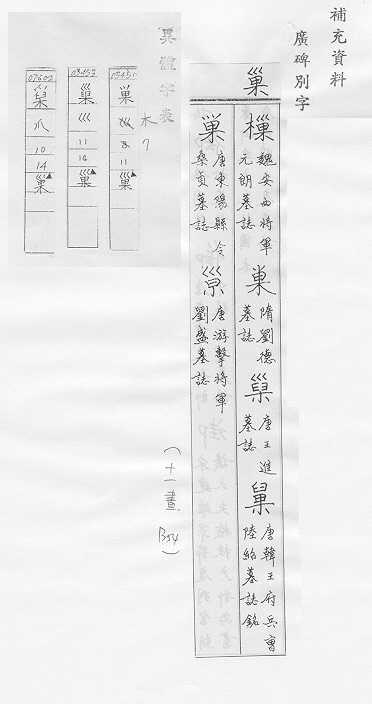 補充資料
廣碑別字
巢
樔 魏安西將軍元朗墓誌
巢 隋劉德墓誌
巢 唐王進墓誌
唐韓王府兵曹陸紹墓誌銘
巢 唐東陽縣令桑貞墓誌
唐游擊將軍劉盛墓誌
(十一畫 B54)
異體字表
木
7
03451
巢
巛
8
11
巢
03452
巢
巛
11
14
巢
07602
爪
10
14
巢